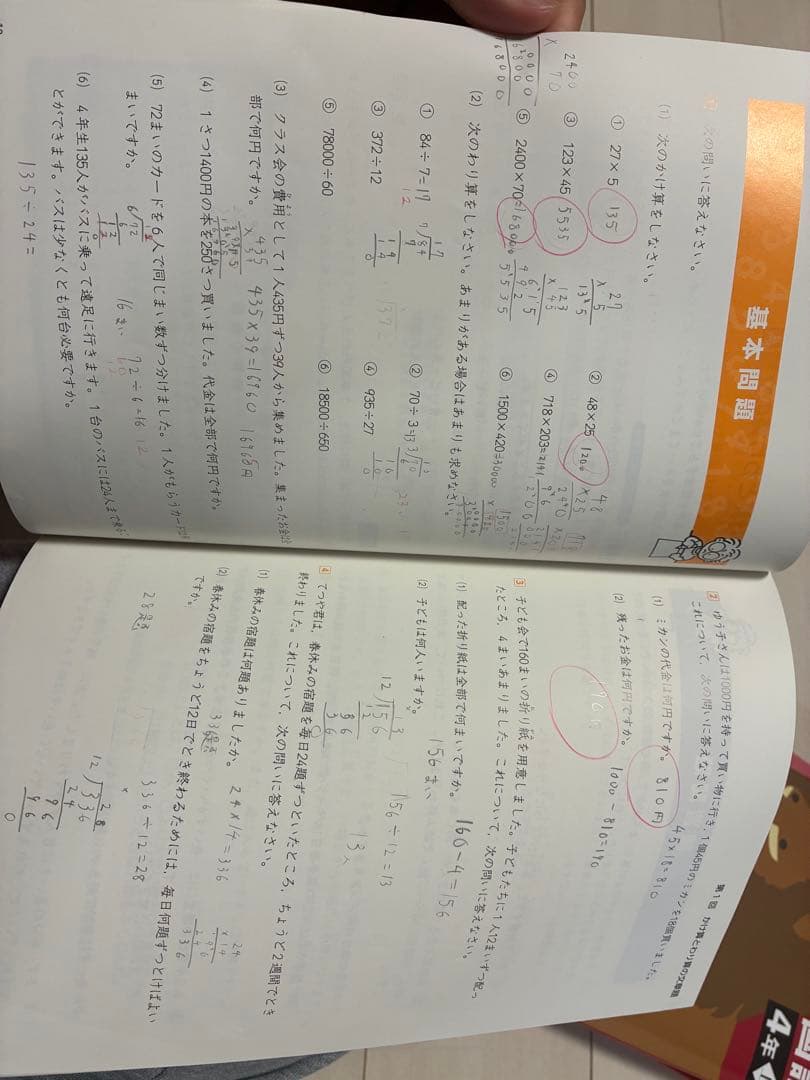 基本問題
次の問いに答えなさい。
(1) 次のかけ算をしなさい。
① 27×5 135
27
× 5
13⁵5
② 48×25 1200
48
×25
240
③ 123×45 5535
123
×45
615
492
5535
④ 718×203
⑤ 2400×70=168000
2400
× 70
0000
⑥ 1500×420=
(2) 次のわり算をしなさい。あまりがある場合はあまりも求めなさい。
① 84÷7=17
12
② 70÷3
③ 372÷12
④ 935÷27
⑤ 78000÷60
⑥ 18500÷650
(3) クラス会の費用として1人435円ずつ39人から集めました。集まったお金は全
部で何円ですか。
435×39=16960 16965円
(4) 1さつ1400円の本を250さつ買いました。代金は全部で何円ですか。
(5) 72まいのカードを6人で同じまい数ずつ分けました。1人がもらうカードは何
まいですか。
16まい 72÷6=16 12
(6) 4年生135人がバスに乗って遠足に行きます。1台のバスには24人まで乗る
とができます。バスは少なくとも何台必要ですか。
135÷24=
第1回 かけ算とわり算の文章題
2 ゆう子さんは1000円を持って買い物に行き，1個45円のミカンを18個買いました。
これについて，次の問いに答えなさい。
(1) ミカンの代金は何円ですか。 810円 45×18=810
(2) 残ったお金は何円ですか。
190 1000-810=190
3 子ども会で160まいの折り紙を用意しました。子どもたちに1人12まいずつ配っ
たところ，4まいあまりました。これについて，次の問いに答えなさい。
(1) 配った折り紙は全部で何まいですか。 160-4=156
156まい
(2) 子どもは何人いますか。
156÷12=13
13人
13
12)156
12
36
36
4 てつや君は，春休みの宿題を毎日24題ずつといたところ，ちょうど2週間でとき
終わりました。これについて，次の問いに答えなさい。
(1) 春休みの宿題は何題ありましたか。 24×14=336
336題
24
×14
96
24
336
(2) 春休みの宿題をちょうど12日でとき終わるためには，毎日何題ずつとけばよい
ですか。
28題 336÷12=28
28
12)336
24
96
96
0
4年